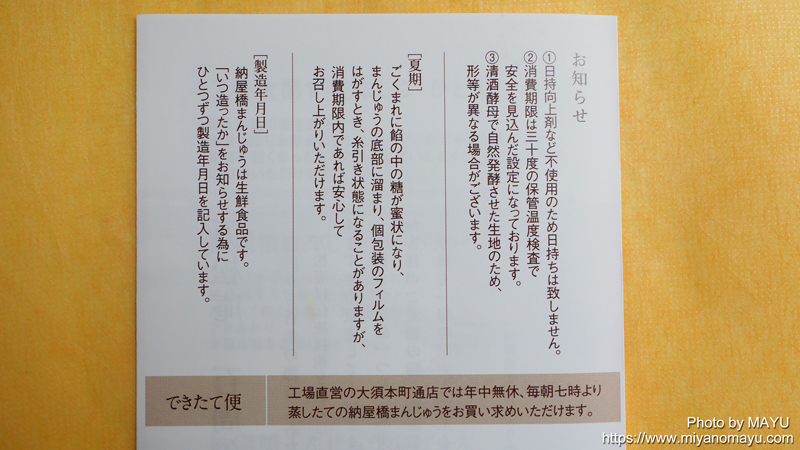 お知らせ
①日持向上剤など不使用のため日持ちは致しません。
②消費期限は三十度の保管温度検査で
安全を見込んだ設定になっております。
③清酒酵母で自然発酵させた生地のため、
形等が異なる場合がございます。
[夏期]
ごくまれに餡の中の糖が蜜状になり、
まんじゅうの底部に溜まり、個包装のフィルムを
はがすとき、糸引き状態になることがありますが、
消費期限内であれば安心して
お召し上がりいただけます。
[製造年月日]
納屋橋まんじゅうは生鮮食品です。
「いつ造ったか」をお知らせする為に
ひとつずつ製造年月日を記入しています。
できたて便
工場直営の大須本町通店では年中無休、毎朝七時より
蒸したての納屋橋まんじゅうをお買い求めいただけます。
Photo by MAYU
https://www.miyanomayu.com/